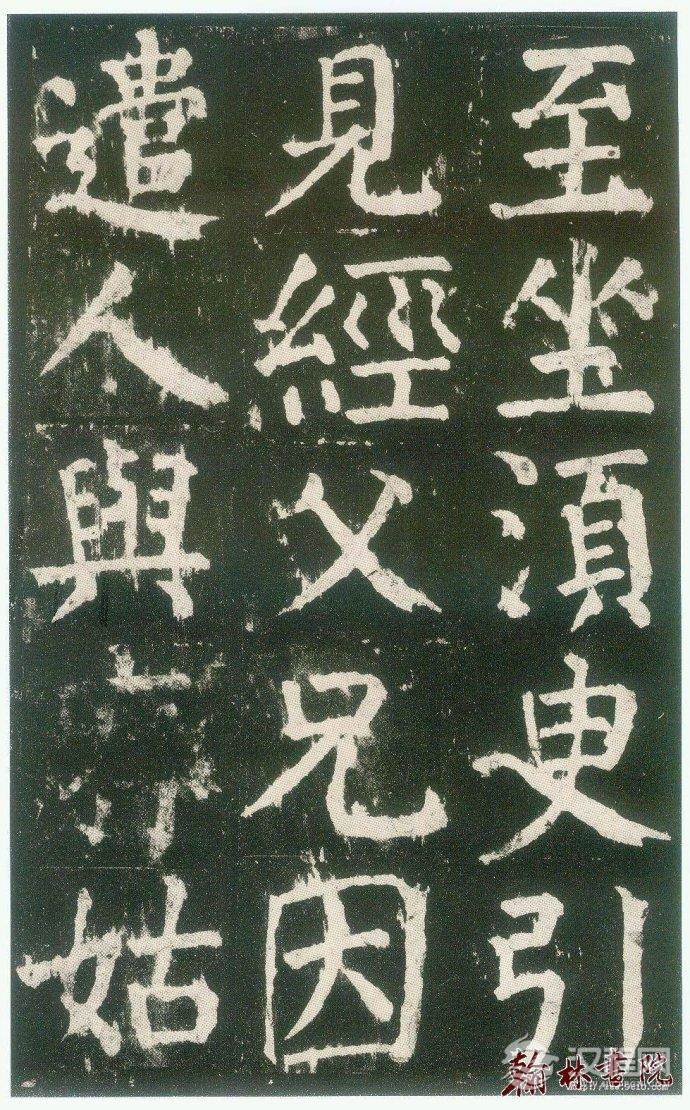 至坐須臾引
見經父兄因
遣人與姑
翰林書院
汉程网